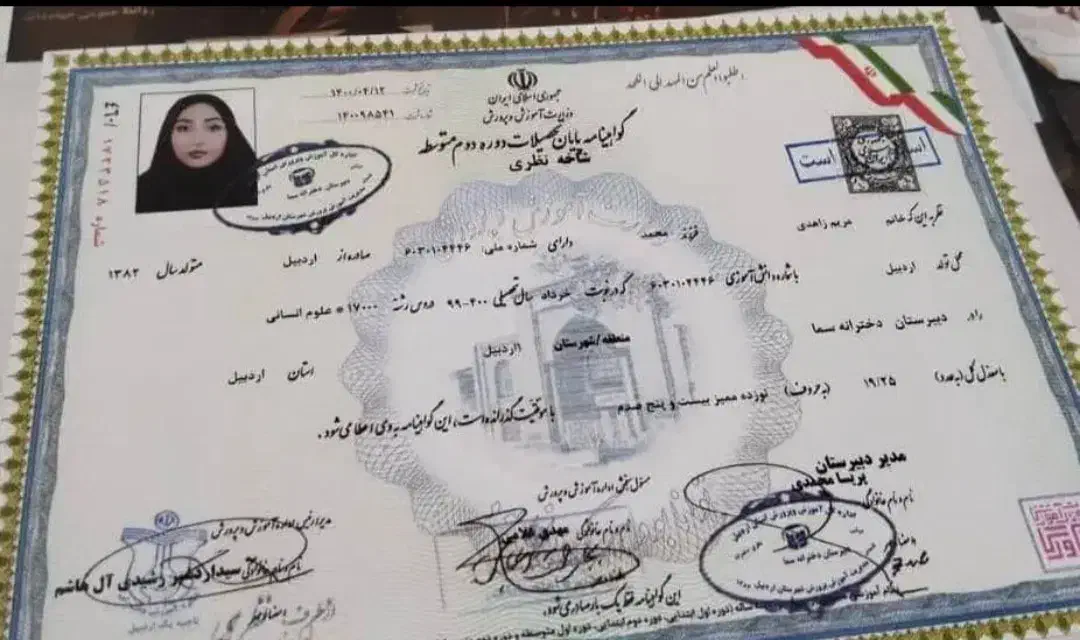 اطلبوا العلم من المهد الی اللحد
جمهوری اسلامی ایران
وزارت آموزش و پرورش
گواهینامه پایان تحصیلات دوره دوم متوسطه
شاخه نظری
تاریخ ثبت ۱۴۰۰/۰۴/۱۲
شماره ثبت ۱۴۰۰۹۸۵۴۱
شماره
است
نظر به این که خانم مریم زاهدی فرزند محمد دارای شماره ملی: ۶۰۳۰۱۰۲۴۴۶ صادره از اردبیل متولد سال ۱۳۸۲
محل تولد اردبیل با شماره دانش آموزی ۶۰۳۰۱۰۲۴۴۶ که در نوبت خرداد سال تحصیلی ۴۰۰-۹۹ دروس رشته ۱۷۰۰۰ * علوم انسانی
را در دبیرستان دخترانه سما منطقه/شهرستان اردبیل استان اردبیل
با معدل کل (به عدد) ۱۹/۲۵ (به حروف) نوزده ممیز بیست و پنج صدم با موفقیت گذرانده است، این گواهینامه به وی اعطا می شود.
مدیر دبیرستان
پریسا مجیدی
نام و نام خانوادگی
مسئول سنجش اداره آموزش و پرورش
نام و نام خانوادگی مهدی غلامی
مدیر/رئیس اداره آموزش و پرورش
نام و نام خانوادگی سیدارکمیر رشیدی آل هاشم
این گواهینامه فقط یک بار صادر می شود.